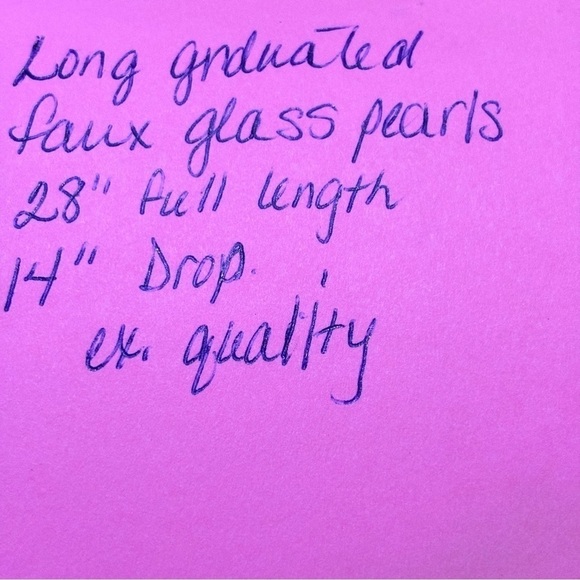 Long graduated
faux glass pearls
28" full length
14" Drop.
ex. quality